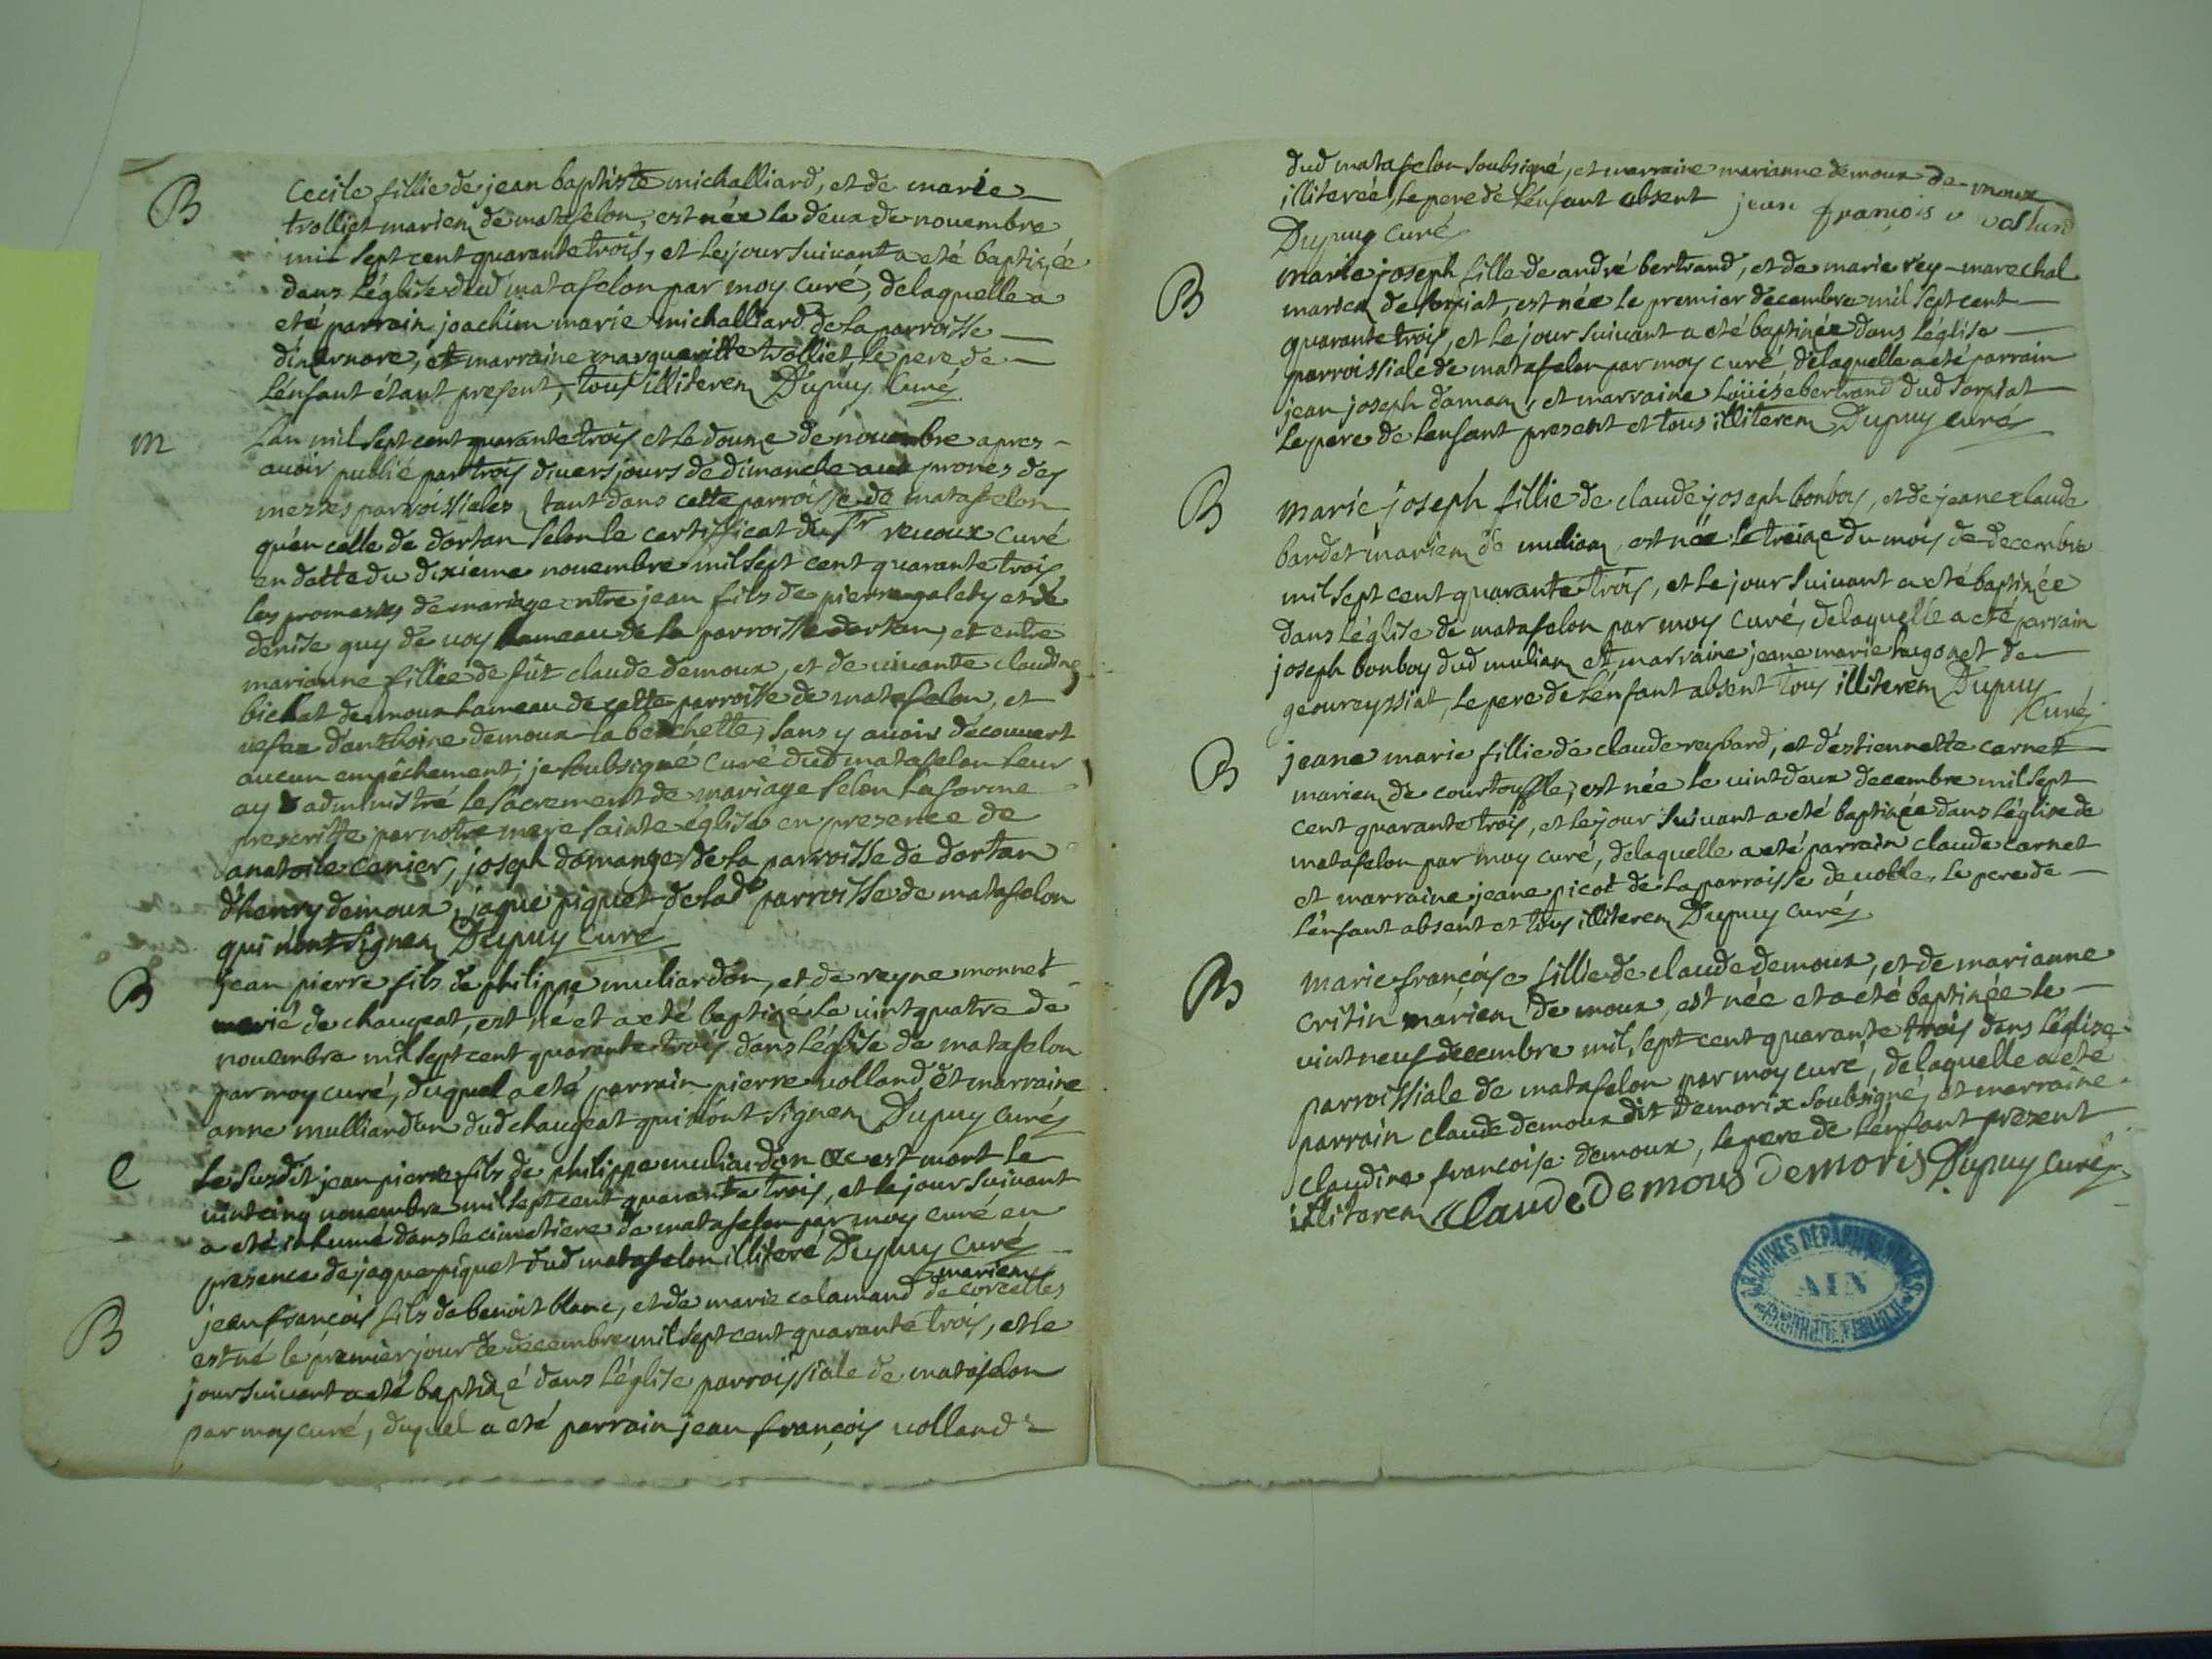 B
Cecile fillie de jean baptiste michalliard, et de marie
trolliet mariez de matafelon, est née le deux de novembre
mil sept cent quarante trois, et le jour suivant a eté baptizée
dans l'église dud matafelon par moy curé, de laquelle a
eté parrain joachim marie michalliard de la parroisse
d'izernore, et marraine margueritte trolliet le pere de
l'énfant étant present, tous illiterez Dupuy Curé
M
L'an mil sept cent quarante trois et le douze de novembre apres
avoir publié par trois divers jours de dimanche aux prones des
messes parroissiales tant dans cette parroisse de matafelon
qu'en celle de dortan selon le certifficat du Sr revoux curé
en datte du dixieme novembre mil sept cent quarante trois
les promesses de mariage entre jean fils de pierre galety et de
denise guy de uoy hameau de la parroisse dortan, et entre
marianne fillie de fût claude demoux, et de vivante claudine
bichat de moux hameau de cette parroisse de matafelon, et
vefve d'anthoine demoux la berchette, sans y avoir découvert
aucun empêchement; je soubsigné Curé dud matafelon leur
ay administré le sacrement de mariage selon la forme
prescritte par notre mere sainte église en presence de
anatoile canier, joseph domange de la parroisse de dortan
d'henry demoux, jaque piquet de lade parroisse de matafelon
qui n'ont signez Dupuy Curé
B
jean pierre fils de philippe muliardon, et de reyne monnet
marié de chaugeat, est né et a eté baptizé le vint quatre de
novembre mil sept cent quarante trois dans l'église de matafelon
par moy curé, duquel a eté parrain pierre volland et marraine
anne mulliardon dud chaugeat qui n'ont signez Dupuy Curé
C
Le susdit jean pierre fils de philippe muliardon &c est mort le
vint cinq novembre mil sept cent quarante trois, et le jour suivant
a eté inhumé dans le cimetiere de matafelon par moy curé en
presence de jaque piquet dud matafelon illiteré Dupuy Curé
mariez
B
jean françois fils de benoit blanc, et de marie calamand de corcelles
est né le premier jour de decembre mil sept cent quarante trois, et le
jour suivant a eté baptizé dans l'église parroissiale de matafelon
par moy curé, duquel a eté parrain jean françois volland
dud matafelon soubsigné, et marraine marianne demoux de moux
illiterée, le pere de l'énfant absent jean françois v volland
Dupuy Curé
B
marie joseph fille de andré bertrand, et de marie rey-marechal
mariez de sorpiat, est née le premier decembre mil sept cent
quarante trois, et le jour suivant a eté baptizée dans l'église
parroissiale de matafelon par moy curé, de laquelle a eté parrain
jean joseph daman, et marraine Loüise bertrand dud sorpiat
le pere de l'enfant present et tous illiterez Dupuy Curé
B
marie joseph fillie de claude joseph bonboy, et de jeane claude
bardet mariez de mulian, est née le treize du mois de decembre
mil sept cent quarante trois, et le jour suivant a eté baptizée
dans l'église de matafelon par moy curé, de laquelle a eté parrain
joseph bonboy dud mulian et marraine jeane marie hugonet de
geovreyssiat, le pere de l'énfant absent tous illiterez Dupuy
Curé
B
jeane marie fillie de claude reybard, et d'estiennette carnet
mariez de courtouffle, est née le vint deux decembre mil sept
cent quarante trois, et le jour suivant a eté baptizée dans l'église de
matafelon par moy curé, de laquelle a eté parrain claude carnet
et marraine jeane picot de la parroisse de volle, le pere de
l'énfant absent et tous illiterez Dupuy Curé
B
marie françoise fillie de claude demoux, et de marianne
critin mariez de moux, est née et a eté baptizée le
vint neuf decembre mil sept cent quarante trois dans l'église
parroissiale de matafelon par moy curé, de laquelle a eté
parrain claude demoux dit Demorix soubsigné, et marraine
claudine françoise demoux, le pere de l'énfant present
illiterez Claude Demous Demoris Dupuy Curé
ARCHIVES DEPARTEMENTALES
AIN